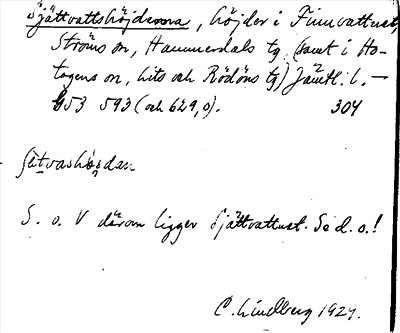 Sjättvattshöjderna, höjder i Finnvattnet,
Ströms sn, Hammerdals tg. (samt i Ho-
togens sn, Lits och Rödöns tg) Jämtl. l. —
G53 593 (och 629, o). 304
S. o. V därom ligger Sjättvattnet. Se d. o.!
C. Lindberg 1927.